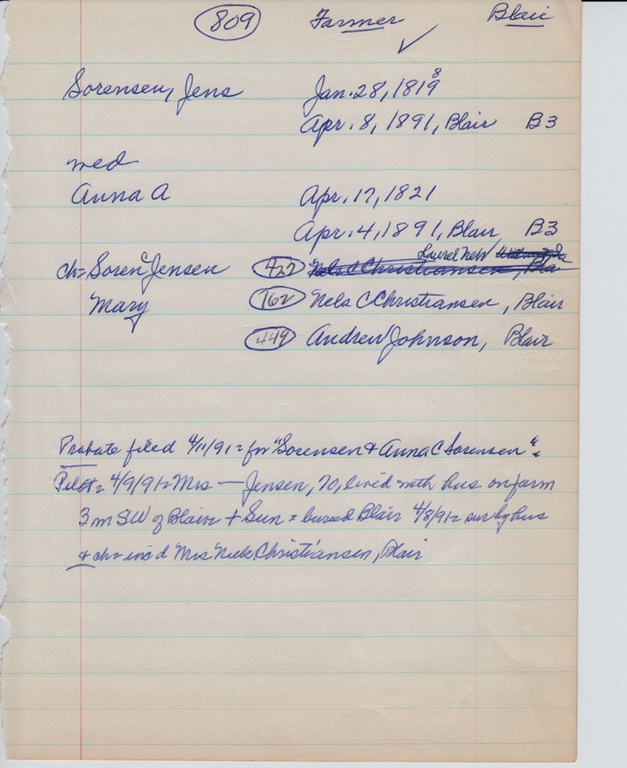 809 Farmer Blair
✓
Sorensen, Jens Jan. 28, 1819 8
Apr. 8, 1891, Blair B3
med
Anna A Apr. 17, 1821
Apr. 4, 1891, Blair B3
Laurel Neb
ch= Soren C Jensen 422 Nels C Christiansen, Bla
Mary 162 Nels C Christiansen, Blair
449 Andrew Johnson, Blair
Probate filed 4/11/91= for "Sorensen & Anna C Sorensen"=
Pilot= 4/9/91= Mrs — Jensen, 70, lived with hus on farm
3 m SW of Blair + Sun= buried Blair 4/8/91= sur by hus
+ ch= incd Mrs Nels Christiansen, Blair